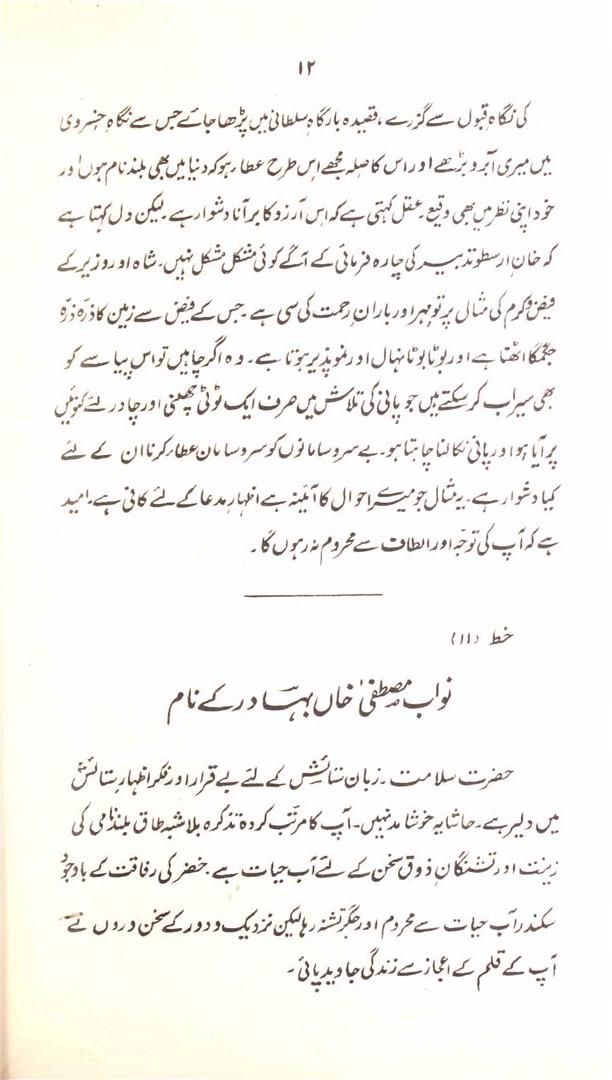 ۱۲
کی نگاہِ قبول سے گزرے، قصیدہ بارگاہِ سلطانی میں پڑھا جائے جس سے نگاہِ خسروی
میں میری آبرو بڑھے اور اس کا صلہ مجھے اس طرح عطا ہو کہ دنیا میں بھی بلند نام ہوں اور
خود اپنی نظر میں بھی وقیع۔ عقل کہتی ہے کہ اس آرزو کا برآنا دشوار ہے۔ لیکن دل کہتا ہے
کہ خانِ ارسطو تدبیر کی چارہ فرمائی کے آگے کوئی مشکل مشکل نہیں۔ شاہ اور وزیر کے
فیض و کرم کی مثال پرتوِ مہر اور بارانِ رحمت کی سی ہے۔ جس کے فیض سے زمین کا ذرّہ ذرّہ
جگمگا اٹھتا ہے اور بوٹا بوٹا نہال اور نمو پذیر ہوتا ہے۔ وہ اگر چاہیں تو اس پیاسے کو
بھی سیراب کر سکتے ہیں جو پانی کی تلاش میں صرف ایک ٹوٹی چھلنی اور چادر لئے کنوئیں
پر آیا ہو اور پانی نکالنا چاہتا ہو۔ بے سروسامانوں کو سروسامان عطاء کرنا ان کے لئے
کیا دشوار ہے۔ یہ مثال جو میرے احوال کا آئینہ ہے اظہارِ مدعا کے لئے کافی ہے۔ امید
ہے کہ آپ کی توجّہ اور الطاف سے محروم نہ رہوں گا۔
خط (۱۱)
نواب مصطفیٰ خاں بہادر کے نام
حضرت سلامت۔ زبان ستائش کے لئے بے قرار اور فکر اظہارِ ستائش
میں دلیر ہے۔ حاشا یہ خوشامد نہیں۔ آپ کا مرتّب کردہ تذکرہ بلا شبہ طاق بلند نامی کی
زینت اور تشنگانِ ذوقِ سخن کے لئے آب حیات ہے۔ خضر کی رفاقت کے باوجود
سکندر آب حیات سے محروم اور جگر تشنہ رہا لیکن نزدیک و دور کے سخن وروں نے
آپ کے قلم کے اعجاز سے زندگی جاوید پائی۔